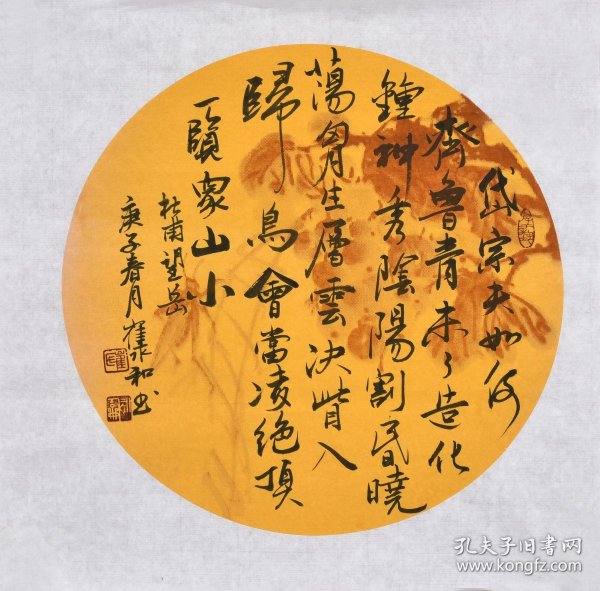 岱宗夫如何
齊魯青未了造化
鍾神秀陰陽割昏曉
蕩胷生層雲決眥入
歸鳥會當凌絕頂
一覽眾山小
杜甫望岳
庚子春月崔永和书
孔夫子旧书网
www.kongfz.com